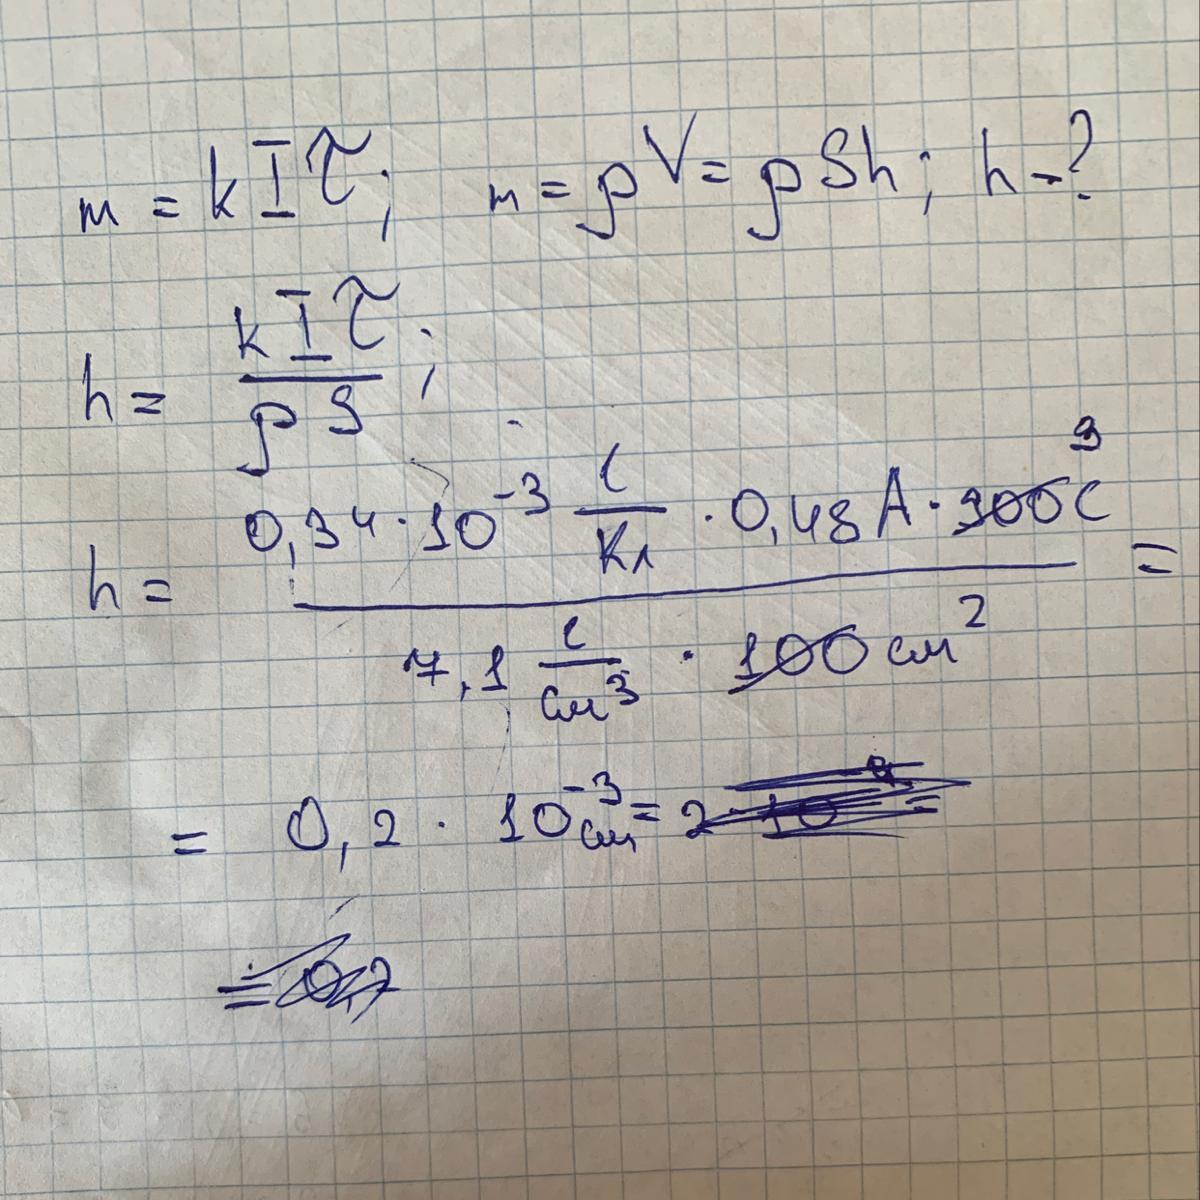 m = k I τ; m = ρV = ρSh; h - ?
h = kIτ / ρS;
h = 0,34 · 10⁻³ г/Кл · 0,48 А · 900 с 9 / 7,1 г/см³ · 100 см² =
= 0,2 · 10⁻³ см = 2 · 10 =
= 0,2